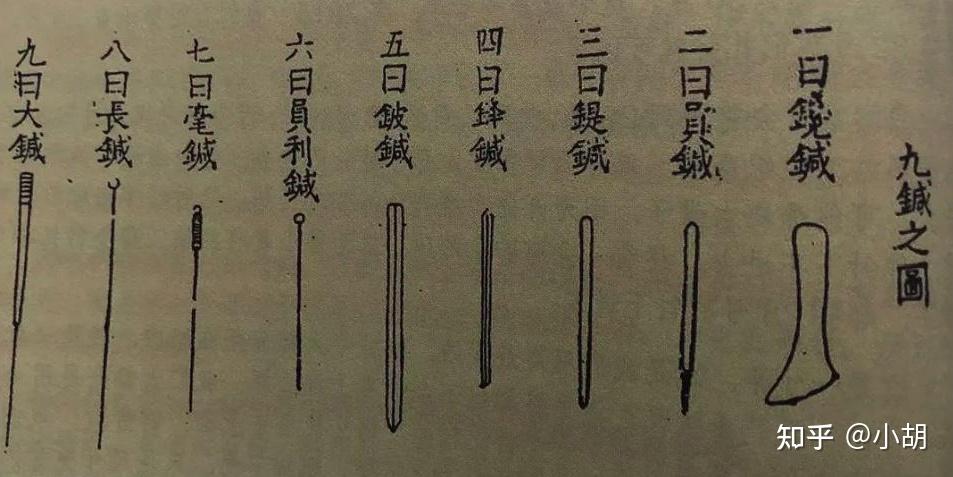 九鍼之圖
一曰鑱鍼
二曰員鍼
三曰鍉鍼
四曰鋒鍼
五曰鈹鍼
六曰員利鍼
七曰毫鍼
八曰長鍼
九曰大鍼
知乎 @小胡